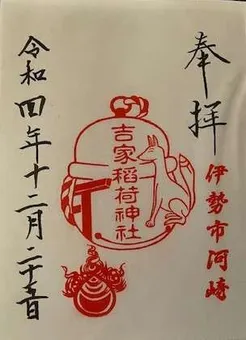 奉拝
伊勢市河崎
吉家稲荷神社
令和四年十二月二十五日